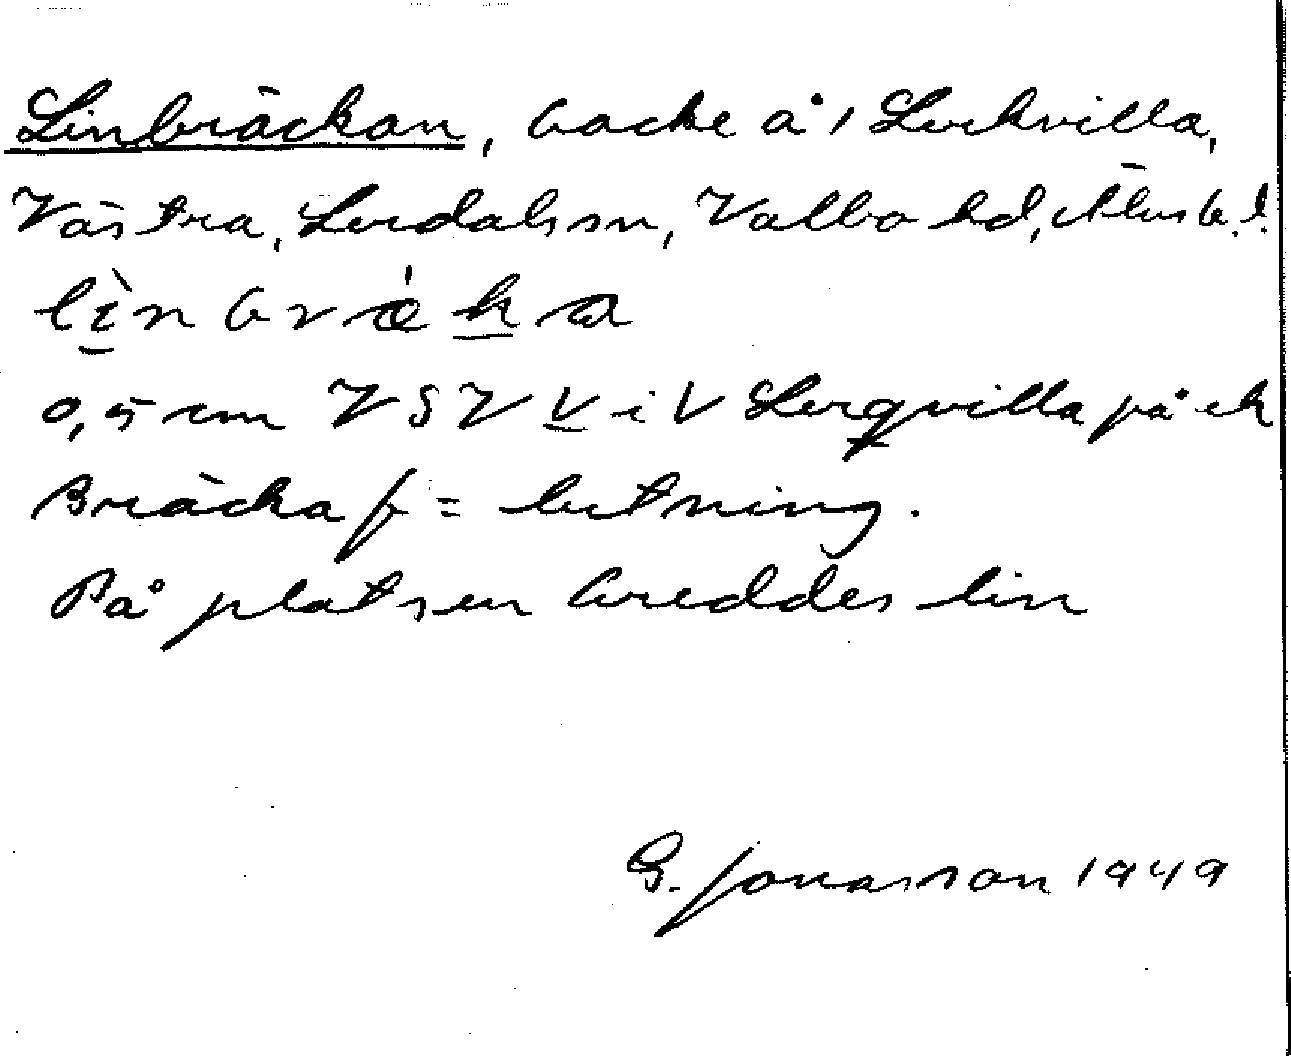 Linbräckan, backe å 1 Lerkvilla,
Västra, Lerdals sn, Valbo hd, Älvsb. l.
lìnbrǽka
0,5 cm VSV V i V Lerqvilla på ek
Bräcka f. = lutning.
På platsen breddes lin
G. Jonasson 1949